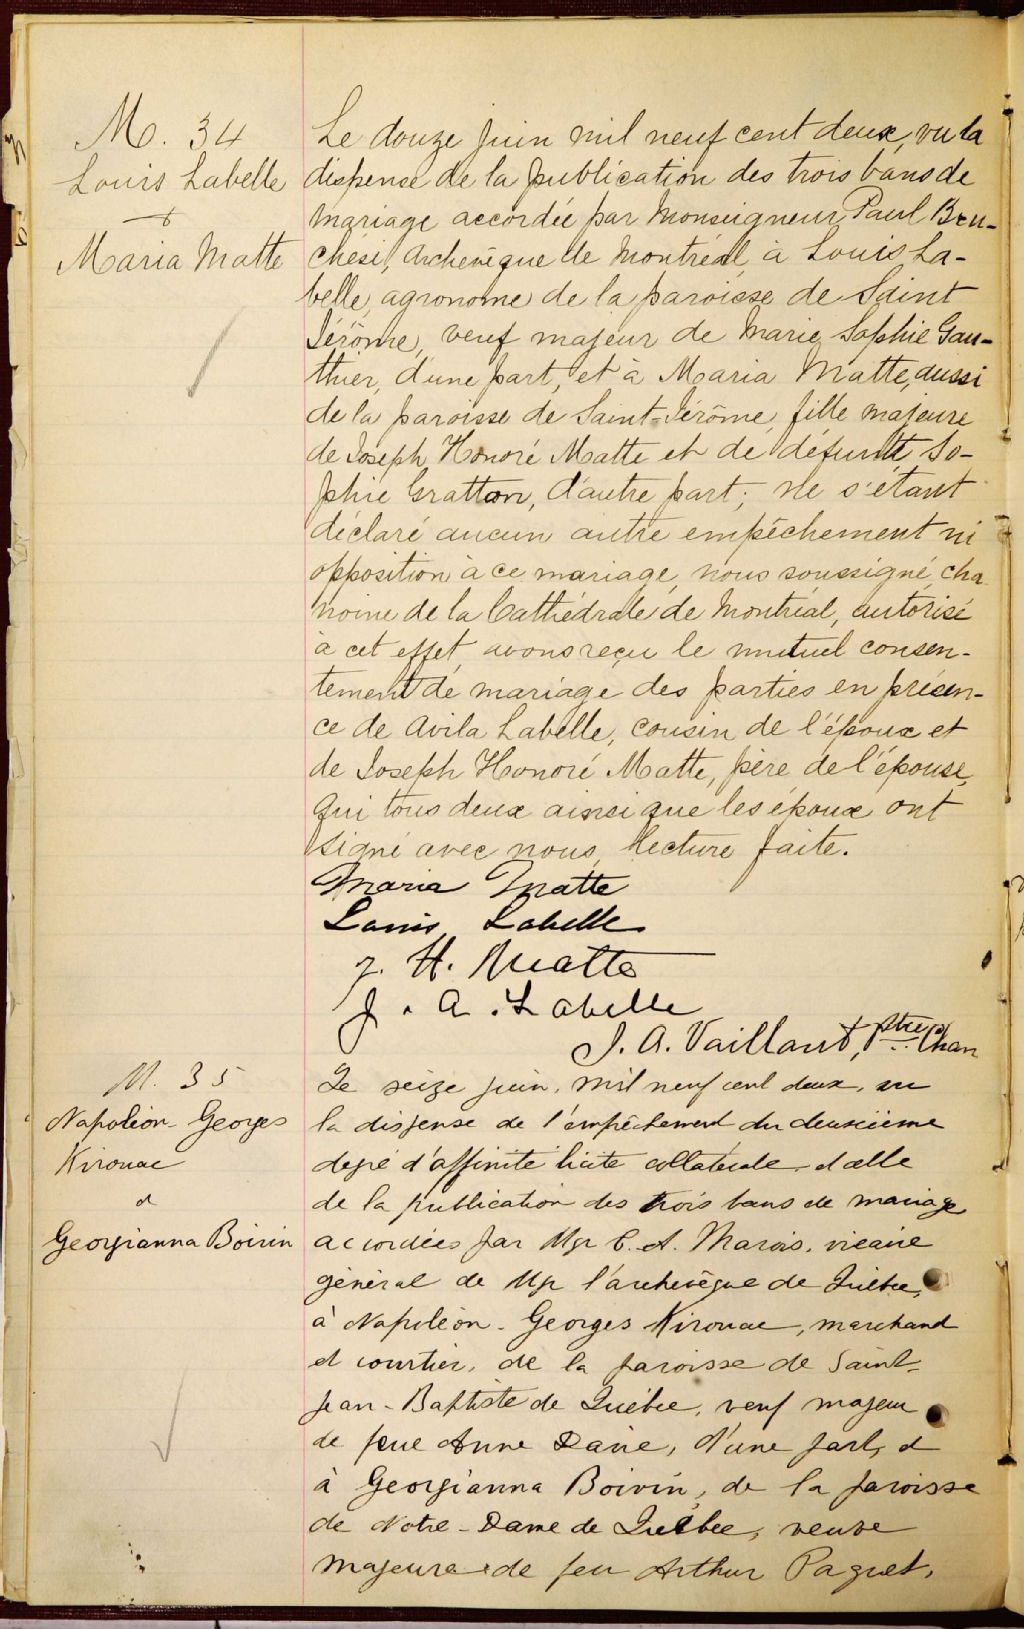 M. 34
Louis Labelle
+
Maria Matte
Le douze juin mil neuf cent deux, vu la
dispense de la publication des trois bans de
mariage accordée par Monseigneur Paul Bru-
chési, Archevêque de Montréal, à Louis La-
belle, agronome de la paroisse de Saint
Jérôme, veuf majeur de Marie Sophie Gau-
thier, d'une part, et à Maria Matte, aussi
de la paroisse de Saint-Jérôme, fille majeure
de Joseph Honoré Matte et de défunte So-
phie Gratton, d'autre part; ne s'étant
déclaré aucun autre empêchement ni
opposition à ce mariage, nous soussigné, cha
noine de la Cathédrale de Montréal, autorisé
à cet effet, avons reçu le mutuel consen-
tement de mariage des parties en présen-
ce de Avila Labelle, cousin de l'époux et
de Joseph Honoré Matte, père de l'épouse,
qui tous deux ainsi que les époux ont
signé avec nous, lecture faite.
Maria Matte
Louis Labelle
J. H. Matte
J. A. Labelle
J. A. Vaillant, Ptre Chan
M. 35
Napoléon-Georges
Kirouac
et
Georgianna Boivin
Le seize juin, mil neuf cent deux, vu
la dispense de l'empêchement du deuxième
degré d'affinité licite collatérale et celle
de la publication des trois bans de mariage
accordées par Mgr C. A. Marois, vicaire
général de Mgr l'archevêque de Québec,
à Napoléon-Georges Kirouac, marchand
et courtier, de la paroisse de Saint-
Jean-Baptiste de Québec, veuf majeur
de feue Anne Dane, d'une part, et
à Georgianna Boivin, de la paroisse
de Notre-Dame de Québec, veuve
majeure de feu Arthur Paquet,